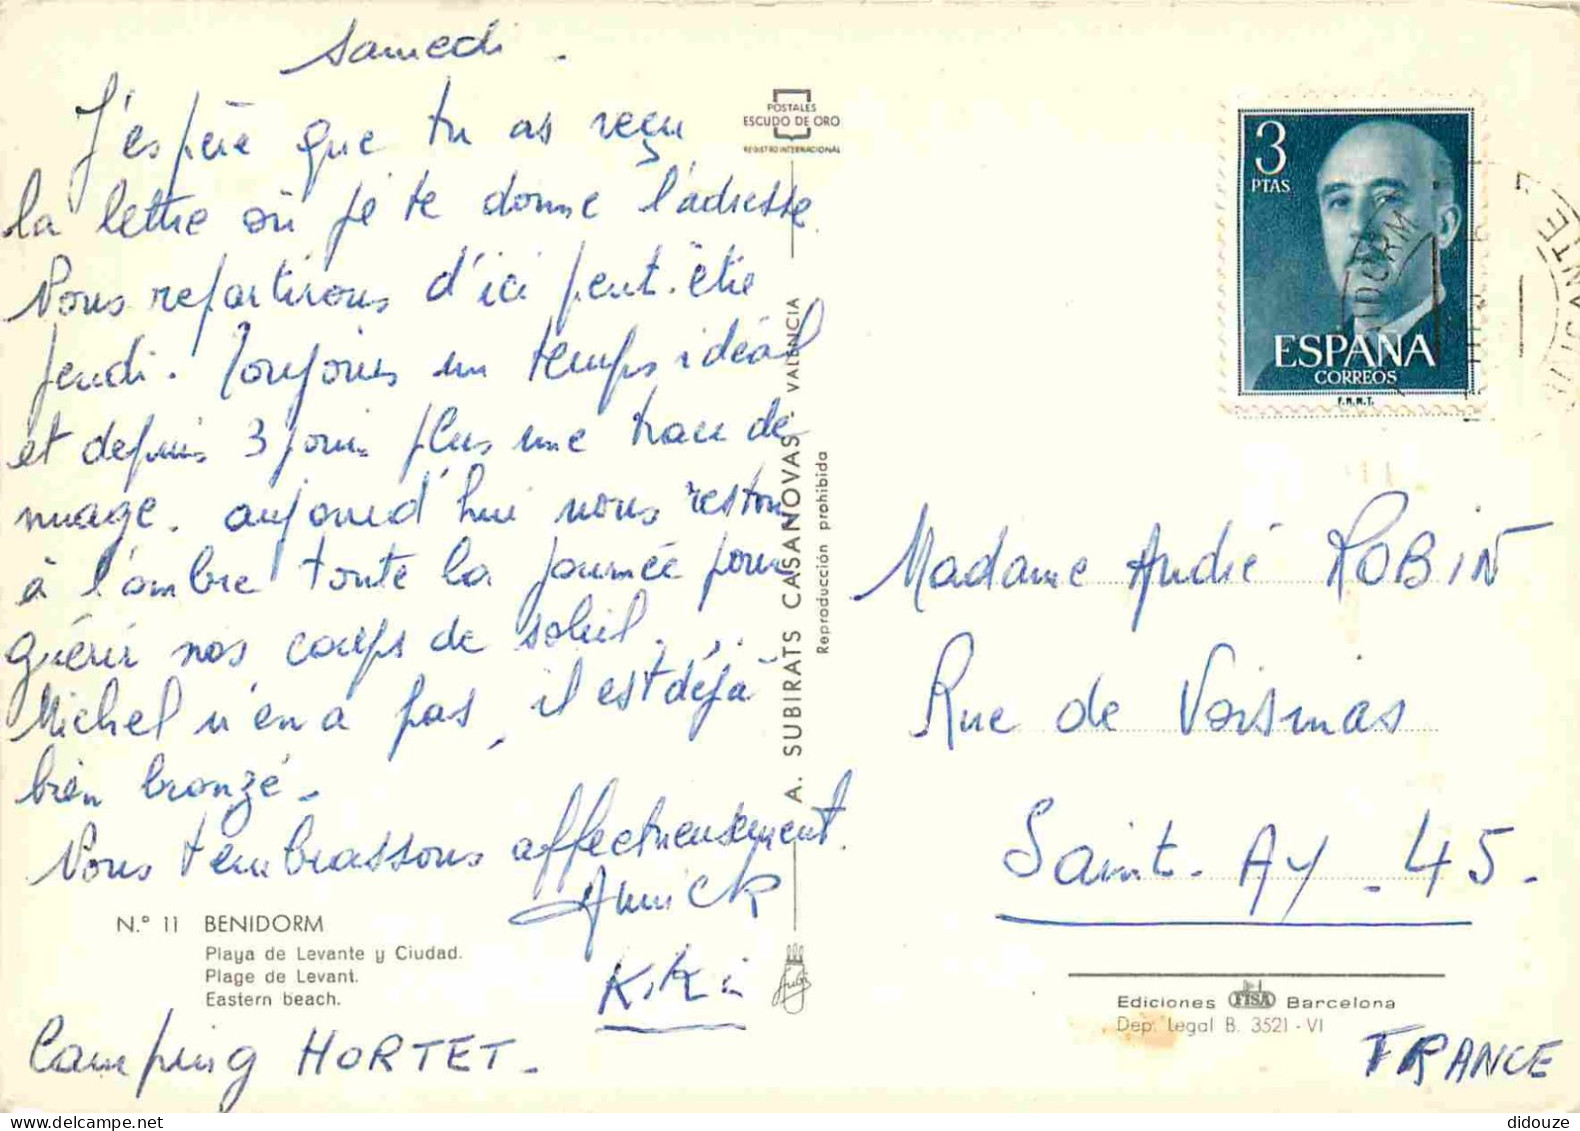 Samedi.
J'espère que tu as reçu
la lettre où je te donne l'adresse.
Nous repartirons d'ici peut-être
jeudi. Toujours un temps idéal
et depuis 3 jours plus une trace de
nuage. aujourd'hui nous restons
à l'ombre toute la journée pour
guérir nos coups de soleil...
Michel n'en a pas, il est déjà
bien bronzé.
Nous t'embrassons affectueusement.
Annick
Kiki
N.º 11 BENIDORM
Playa de Levante y Ciudad.
Plage de Levant.
Eastern beach.
Camping HORTET.
POSTALES
ESCUDO DE ORO
REGISTRO INTERNACIONAL
A. SUBIRATS CASANOVAS. VALENCIA
Reproducción prohibida
Subi
3
PTAS
ESPAÑA
CORREOS
F.N.M.T.
Madame André ROBIN
Rue de Voisinas
Saint-Ay - 45.
Ediciones FISA Barcelona
Dep. Legal B. 3521 - VI
FRANCE
didouze